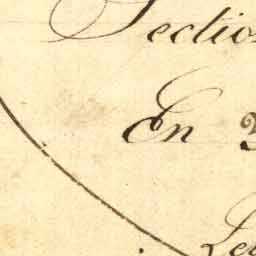 Sectio
En
Le